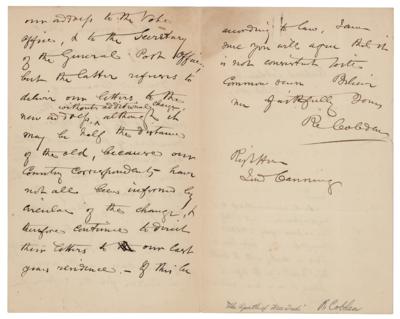 our address to the Vote
Office, & to the Secretary
of the General Post Office,
but the latter refuses to
deliver our letters to the
without additional charge,
new address, although it
may be half the distance
of the old, because our
Country Correspondents have
not all been informed by
circular of the change, &
therefore continue to direct
their letters to our last
years residence. - If this be
according to law, I am
sure you will agree that it
is not consistent with
Common sense Believe
me faithfully Yours
Rd Cobden
Right Hon
Lord Canning
"The Apostle of Free Trade" R Cobden